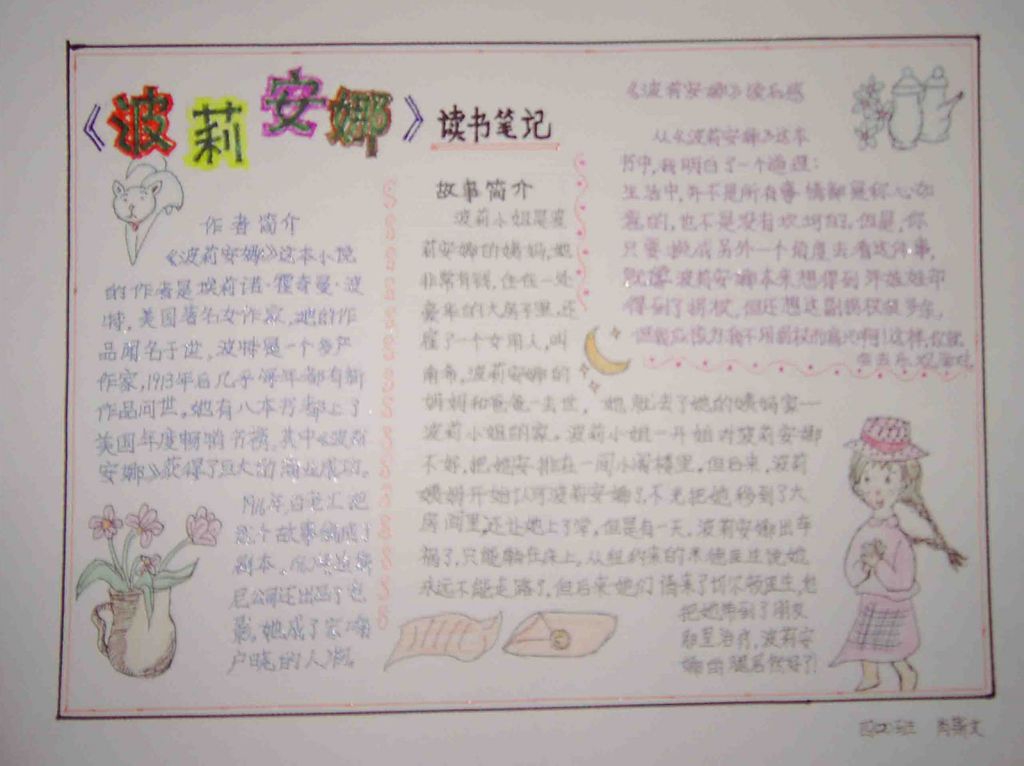 《波莉安娜》读书笔记
作者简介
《波莉安娜》这本小说
的作者是埃莉诺·霍奇曼·波
特，美国著名女作家，她的作
品闻名于世，波特是一个多产
作家，1913年后几乎每年都有新
作品问世，她有八本书都上了
美国年度畅销书榜。其中《波莉
安娜》获得了巨大的商业成功。
1916年百老汇把
这个故事编成了
剧本，
尼公司还出品了电
影，她成了家喻
户晓的人物。
故事简介
波莉小姐是波
莉安娜的姨妈，她
非常有钱，住在一处
豪华的大房子里，还
雇了一个女用人，叫
南希，波莉安娜的
妈妈和爸爸一去世，她就去了她的姨妈家一
波莉小姐的家。波莉小姐一开始对波莉安娜
不好，把她安排在一间小阁楼里，但后来，波莉
姨妈开始认可波莉安娜了，不光把她移到了大
房间里，还让她上了学，但是有一天，波莉安娜出车
祸了，只能躺在床上，从纽约来的米德医生说她
永远不能走路了，但后来她们请来了切尔顿医生，他
把她带到了朋友
那里治疗，波莉安
娜的腿居然好了！
《波莉安娜》读后感
从《波莉安娜》这本
书中，我明白了一个道理：
生活中，并不是所有事情都是称心如
意的，也不是没有坎坷的。但是，你
只要换成另外一个角度去看这件事，
就像波莉安娜本来想得到洋娃娃却
得到了拐杖，但还想这副拐杖很多余，
四(2)班